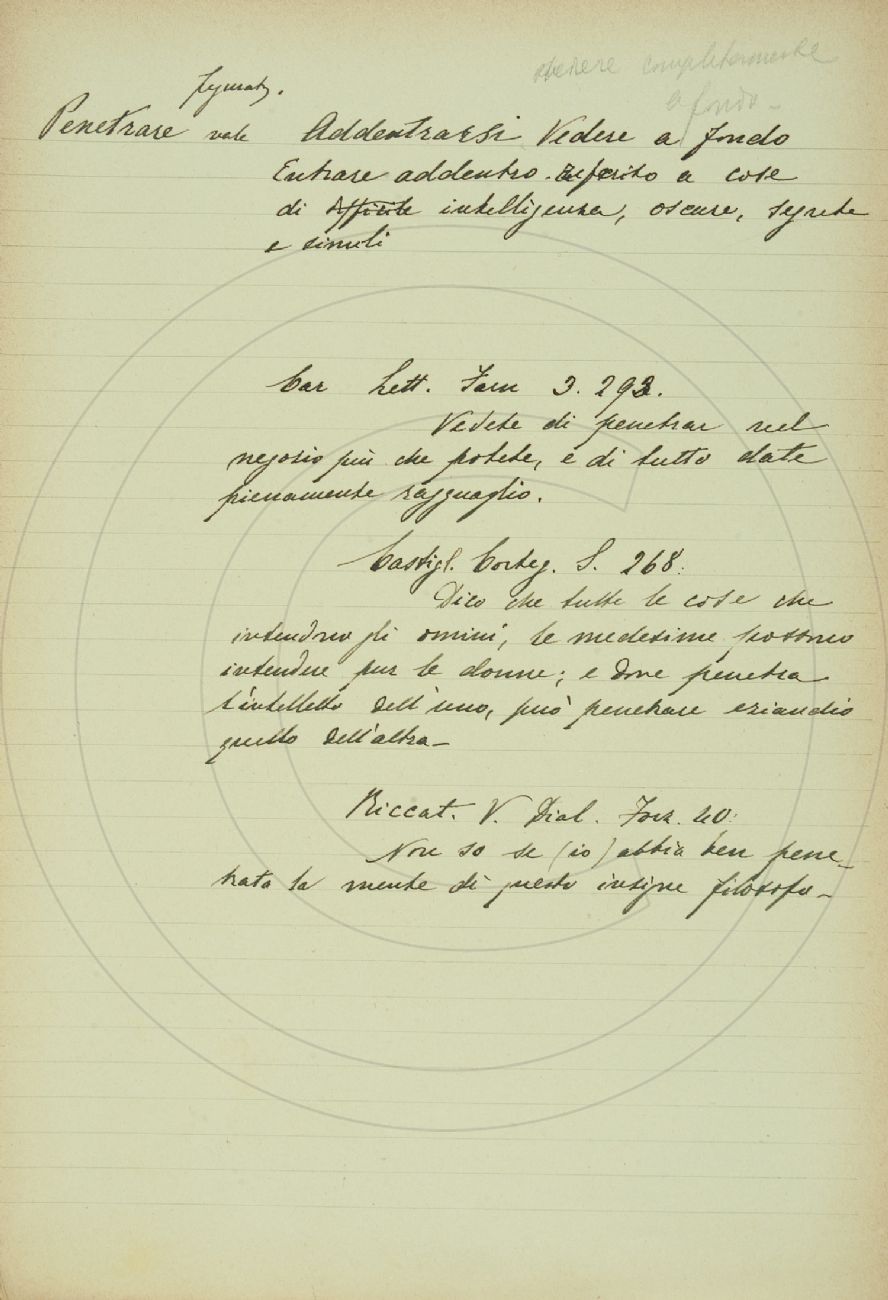 vedere completamente
a fondo -
figurat.
Penetrare vale Addentrarsi Vedere a fondo
Entrare addentro. Riferito a cose
di difficile intelligenza, oscure, segrete
e simili
Car Lett. Farn 3. 293.
Vedete di penetrar nel
negozio più che potete, e di tutto date
pienamente ragguaglio.
Castigl. Corteg. S. 268.
Dico che tutte le cose che
intendono gli omini, le medesime possono
intendere pur le donne; e dove penetra
l'intelletto dell'uno, può penetrare eziandio
quello dell'altra -
Riccat. V. Dial. Forz. 40.
Non so se (io) abbia ben pene-
trata la mente di questo insigne filosofo -